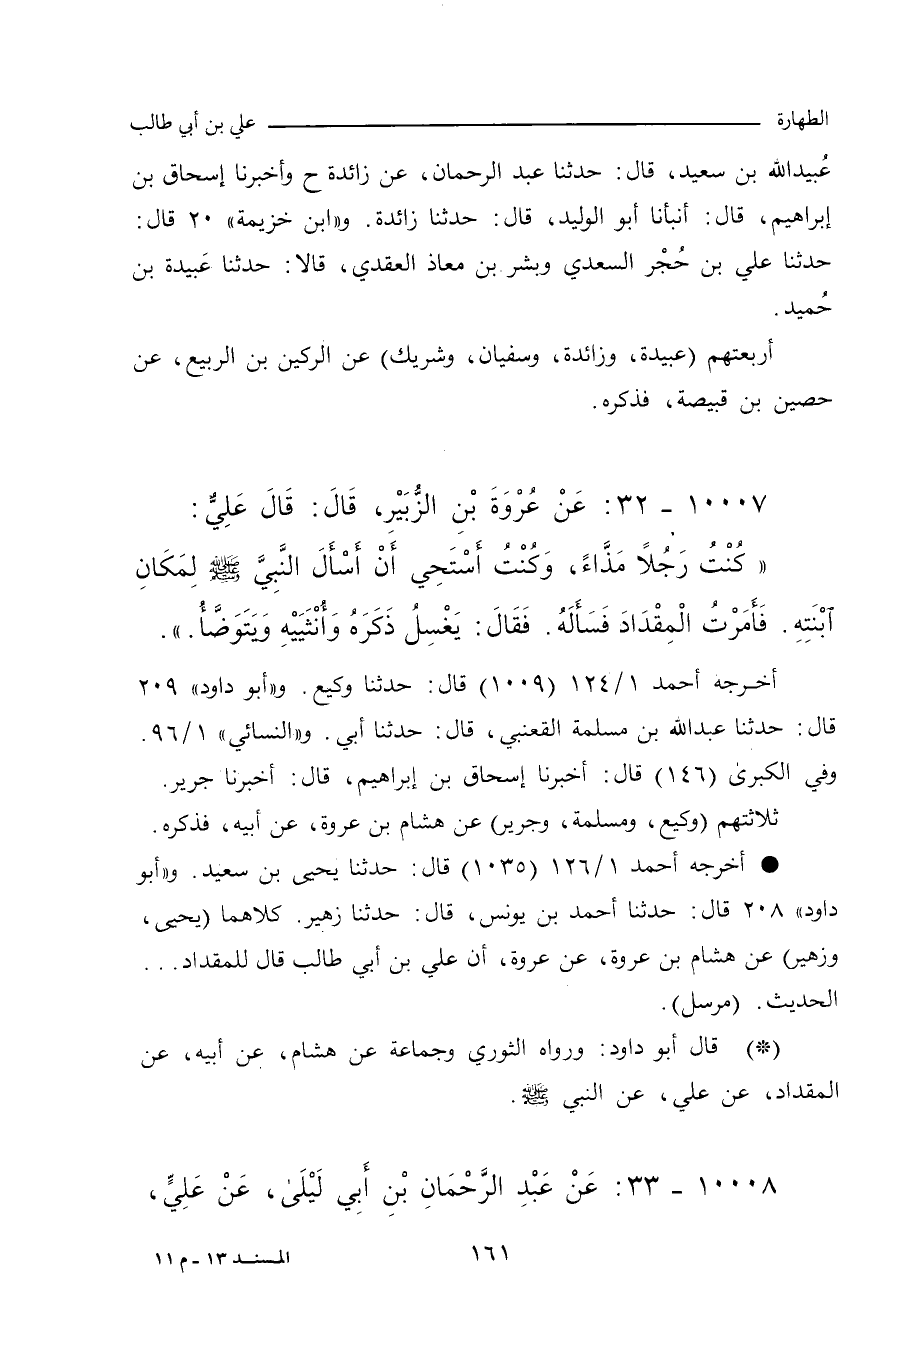 الطهارة ــــــــــ علي بن أبي طالب
عُبيدالله بن سعيد، قال: حدثنا عبد الرحمان، عن زائدة ح وأخبرنا إسحاق بن
إبراهيم، قال: أنبأنا أبو الوليد، قال: حدثنا زائدة. و«ابن خزيمة» ٢٠ قال:
حدثنا علي بن حُجْر السعدي وبشر بن معاذ العقدي، قالا: حدثنا عَبيدة بن
حُميد.
أربعتهم (عبيدة، وزائدة، وسفيان، وشريك) عن الركين بن الربيع، عن
حصين بن قبيصة، فذكره.
١٠٠٠٧ ـ ٣٢: عَنْ عُرْوَةَ بْنِ الزُّبَيْرِ، قَالَ: قَالَ عَلِيٌّ:
« كُنْتُ رَجُلاً مَذَّاءً، وَكُنْتُ أَسْتَحِي أَنْ أَسْأَلَ النَّبِيَّ ﷺ لِمَكَانِ
ٱبْنَتِهِ. فَأَمَرْتُ الْمِقْدَادَ فَسَأَلَهُ. فَقَالَ: يَغْسِلُ ذَكَرَهُ وَأُنْثَيَيْهِ وَيَتَوَضَّأُ.».
أخرجه أحمد ١٢٤/١ (١٠٠٩) قال: حدثنا وكيع. و«أبو داود» ٢٠٩
قال: حدثنا عبدالله بن مسلمة القعنبي، قال: حدثنا أبي. و«النسائي» ٩٦/١.
وفي الكبرىٰ (١٤٦) قال: أخبرنا إسحاق بن إبراهيم، قال: أخبرنا جرير.
ثلاثتهم (وكيع، ومسلمة، وجرير) عن هشام بن عروة، عن أبيه، فذكره.
● أخرجه أحمد ١٢٦/١ (١٠٣٥) قال: حدثنا يحيى بن سعيد. و«أبو
داود» ٢٠٨ قال: حدثنا أحمد بن يونس، قال: حدثنا زهير. كلاهما (يحيى،
وزهير) عن هشام بن عروة، عن عروة، أن علي بن أبي طالب قال للمقداد...
الحديث. (مرسل).
(*) قال أبو داود: ورواه الثوري وجماعة عن هشام، عن أبيه، عن
المقداد، عن علي، عن النبي ﷺ.
١٠٠٠٨ ـ ٣٣: عَنْ عَبْدِ الرَّحْمَانِ بْنِ أَبِي لَيْلَىٰ، عَنْ عَلِيٍّ،
١٦١
المسند ١٣ ـ م ١١